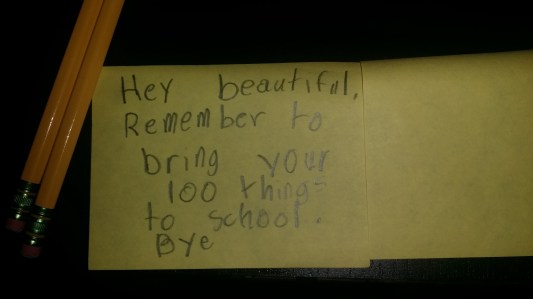 Hey beautiful,
Remember to
bring your
100 things
to school.
Bye